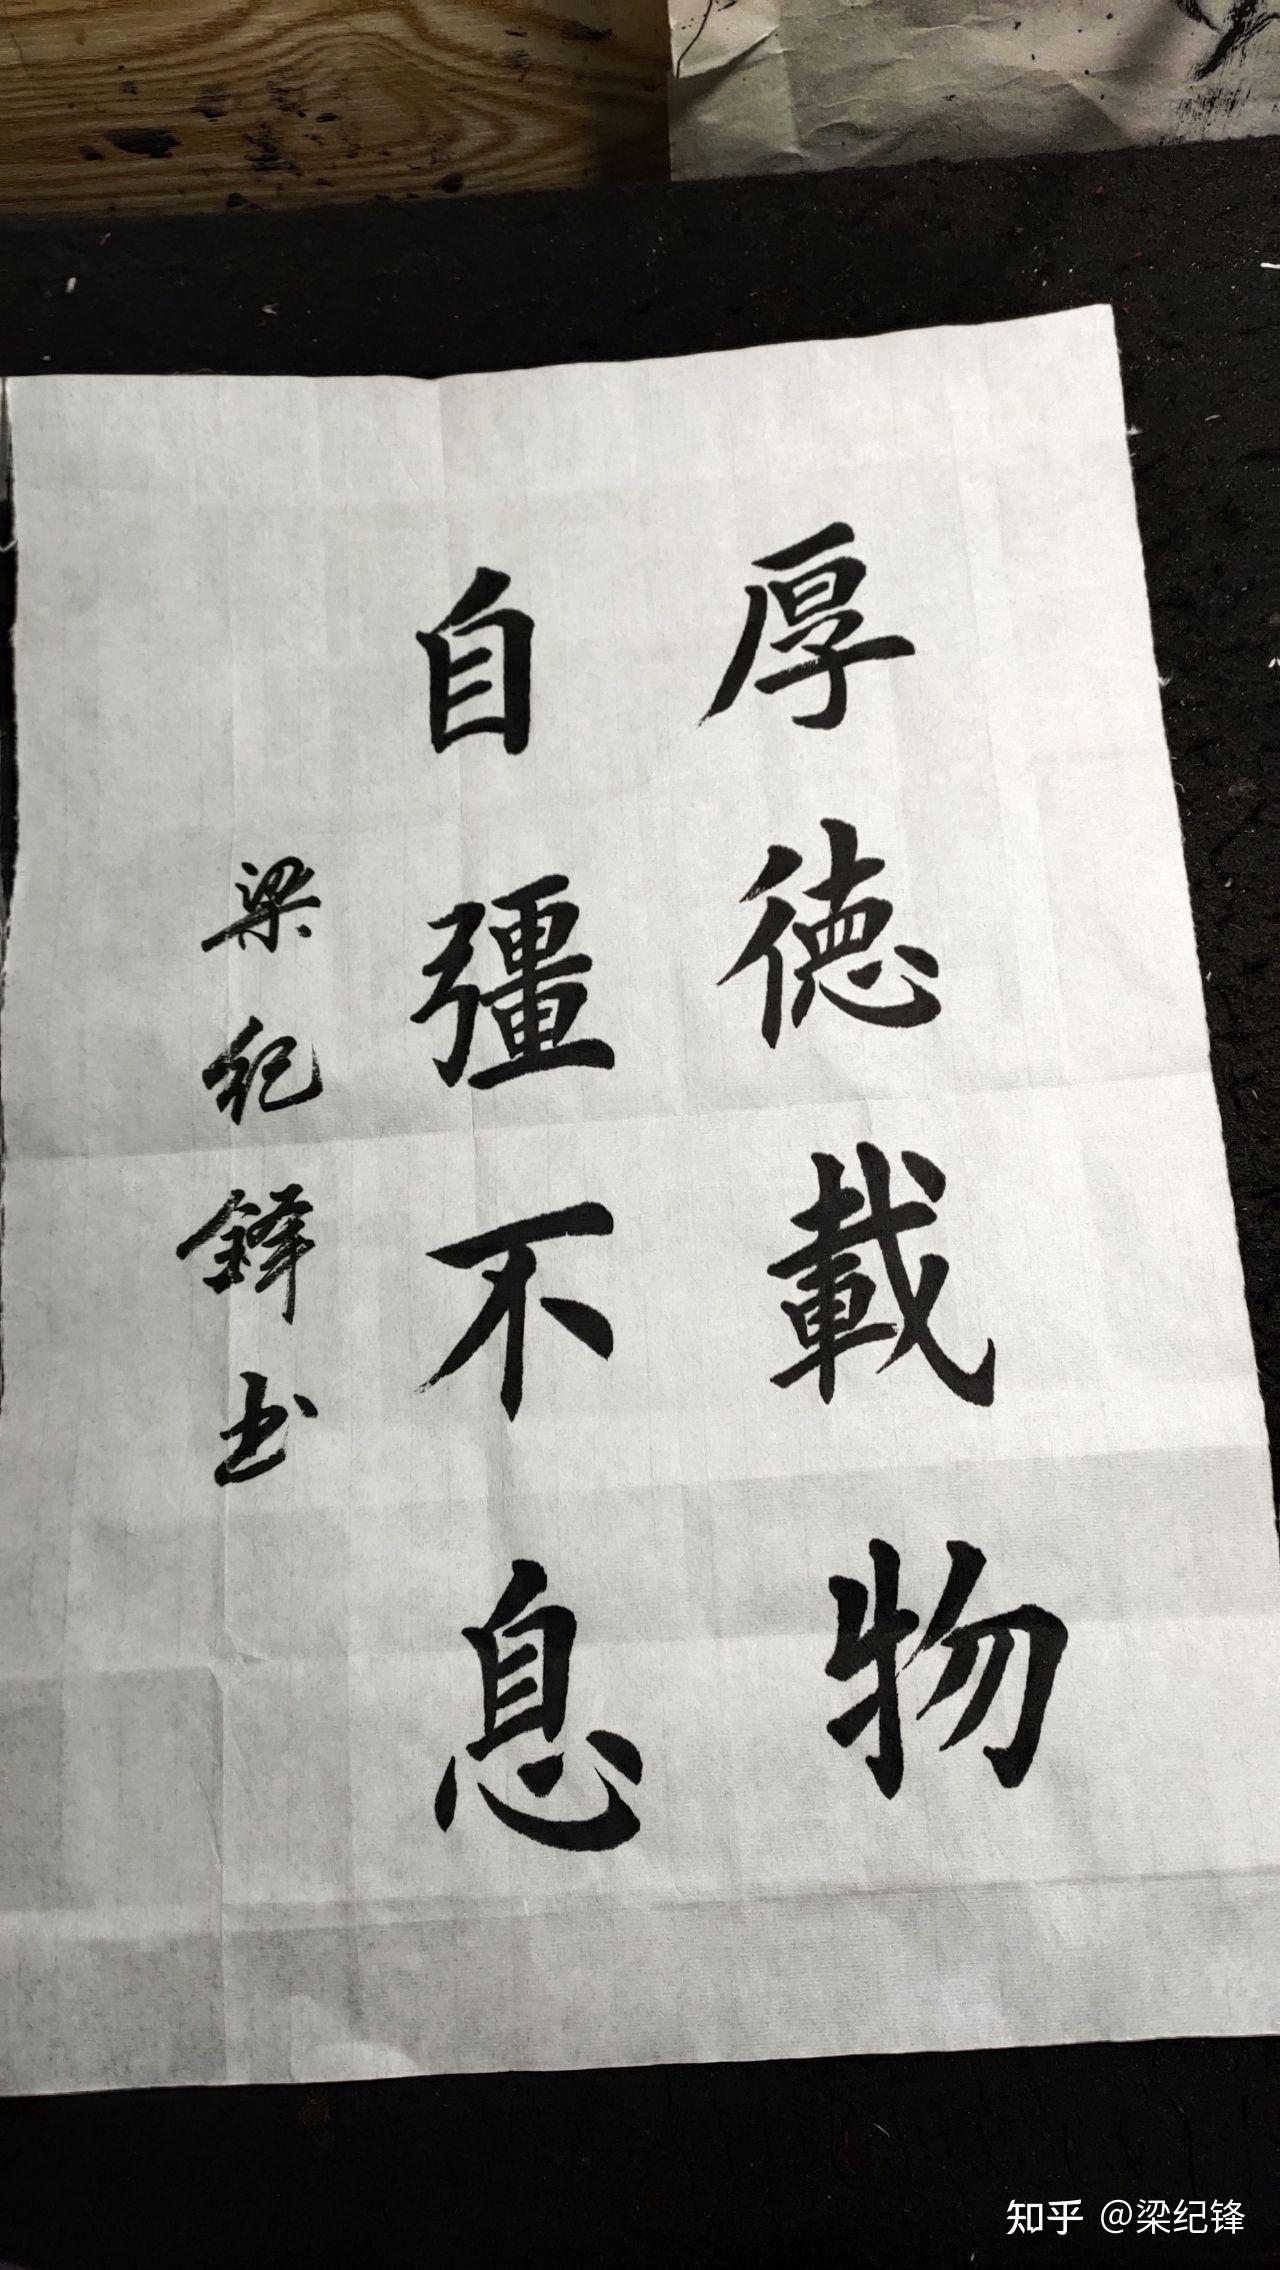 厚德載物
自彊不息
梁紀鋒书
知乎 @梁纪锋